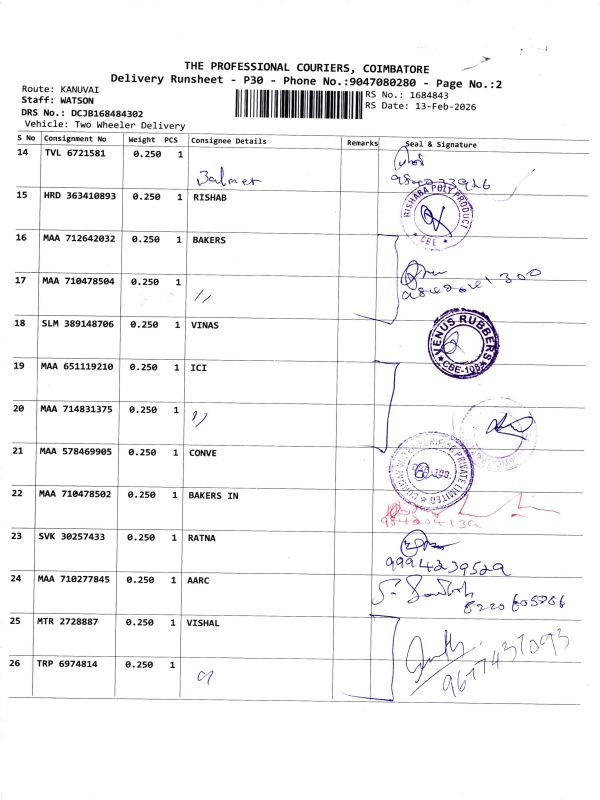 THE PROFESSIONAL COURIERS, COIMBATORE
Delivery Runsheet - P30 - Phone No.:9047080280 - Page No.:2
Route: KANUVAI
Staff: WATSON
DRS No.: DCJB168484302
Vehicle: Two Wheeler Delivery
RS No.: 1684843
RS Date: 13-Feb-2026
S No Consignment No Weight PCS Consignee Details Remarks Seal & Signature
14 TVL 6721581 0.250 1
15 HRD 363410893 0.250 1 RISHAB
RISHABA POLY PRODUCT
* CBE *
16 MAA 712642032 0.250 1 BAKERS
17 MAA 710478504 0.250 1 〃
18 SLM 389148706 0.250 1 VINAS
VENUS RUBBERS
CBE-108
19 MAA 651119210 0.250 1 ICI
20 MAA 714831375 0.250 1 〃
21 MAA 578469905 0.250 1 CONVE
PRIVATE LIMITED
22 MAA 710478502 0.250 1 BAKERS IN
23 SVK 30257433 0.250 1 RATNA
9994239529
24 MAA 710277845 0.250 1 AARC
25 MTR 2728887 0.250 1 VISHAL
9677437093
26 TRP 6974814 0.250 1 〃